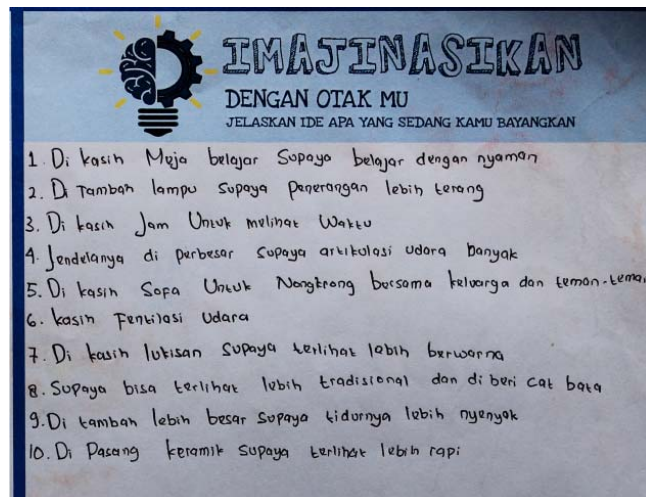 IMAJINASIKAN
DENGAN OTAK MU
JELASKAN IDE APA YANG SEDANG KAMU BAYANGKAN
1. Di kasih Meja belajar Supaya belajar dengan nyaman
2. Di Tambah lampu Supaya Penerangan lebih terang
3. Di kasih Jam Untuk melihat Waktu
4. Jendelanya di perbesar Supaya artikulasi udara banyak
5. Di kasih Sofa Untuk Nongkrong bersama keluarga dan teman-teman
6. kasih Fentilasi Udara
7. Di kasih lukisan Supaya terlihat lebih berwarna
8. Supaya bisa terlihat lebih tradisional dan di beri cat bata
9. Di tambah lebih besar Supaya tidurnya lebih nyenyak
10. Di Pasang keramik Supaya terlihat lebih rapi